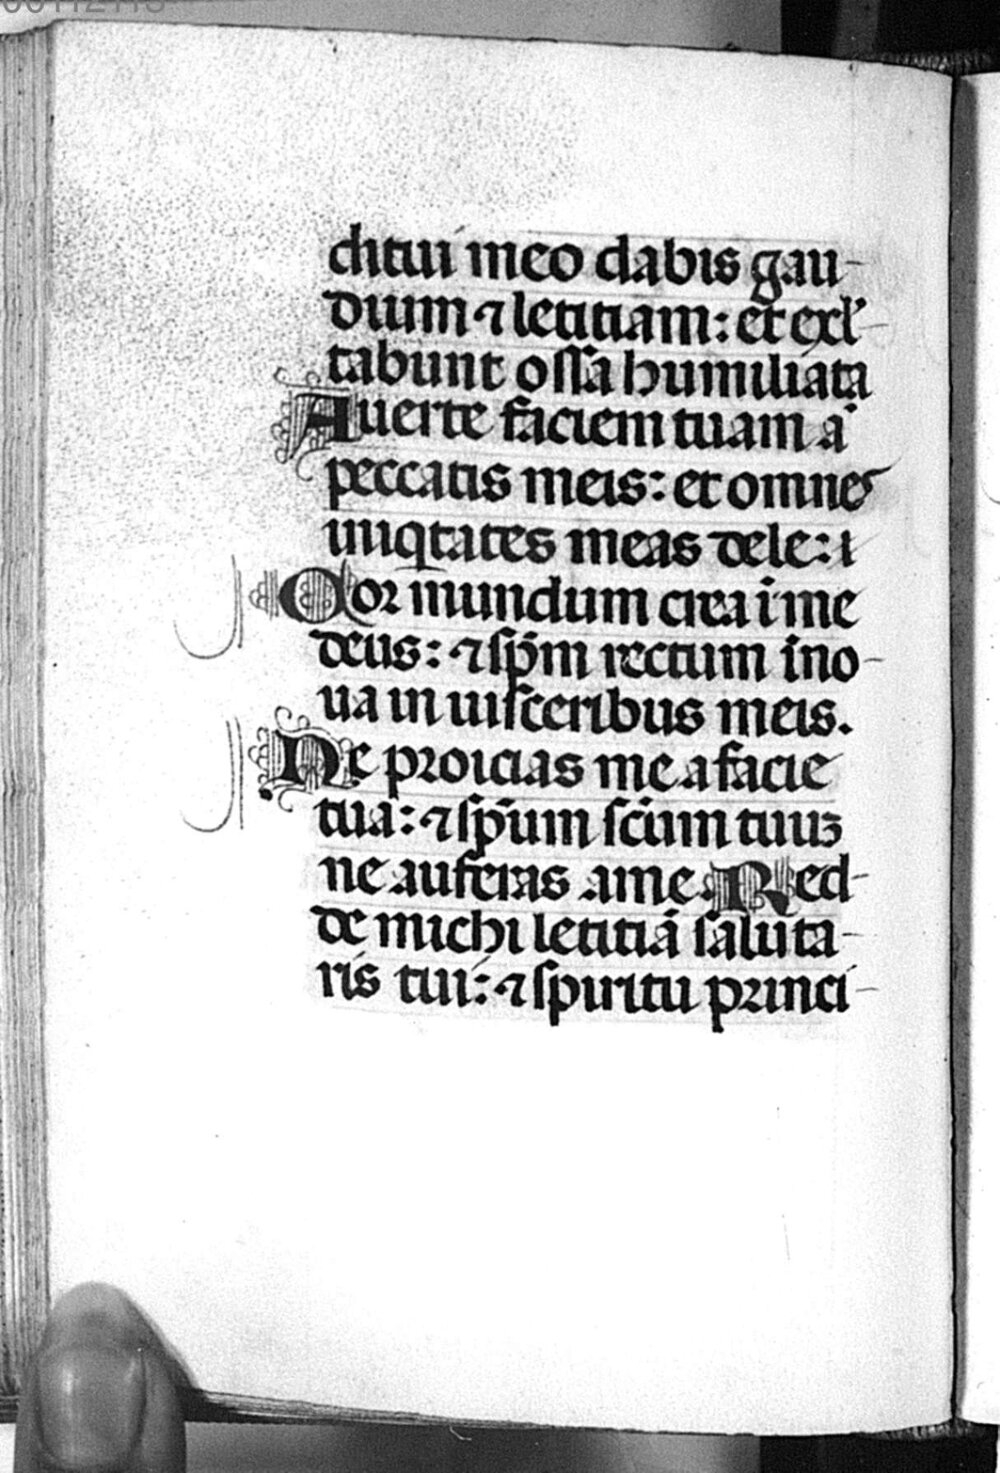 ditui meo dabis gau-
dium ⁊ letitiam: et exl'-
tabunt ossa humiliata
Auerte faciem tuam a
peccatis meis: et omnes
iniqtates meas dele: i
Cor mundum crea i me
deus: ⁊ spm rectum ino-
ua in uisceribus meis.
Ne proicias me a facie
tua: ⁊ spm scum tuuʒ
ne auferas a me. Red-
de michi letitiā saluta-
ris tui: ⁊ spiritu princi-